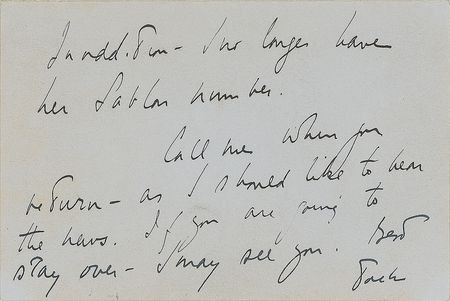 In addition - I no longer have
her Sablon number.
Call me when you
return - as I should like to hear
the news. If you are going to
stay over - I may see you. Best
Jack